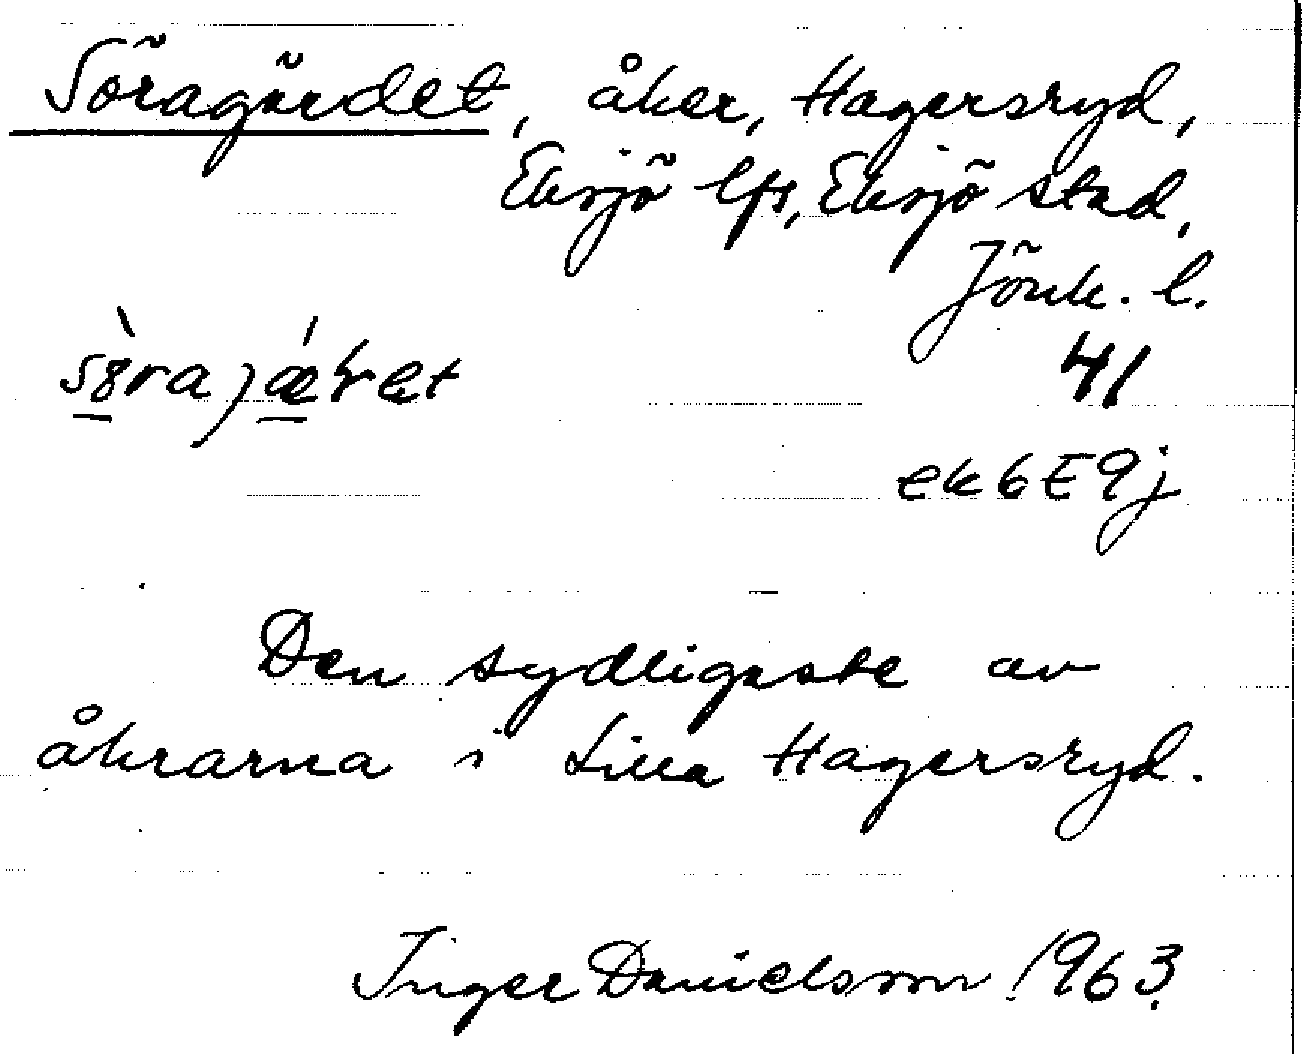 Söragärdet, åker, Hagersryd,
Eksjö lfs, Eksjö stad,
Jönk. l.
41
ek 6E9j
Den sydligaste av
åkrarna i Lilla Hagersryd.
Inger Danielsson 1963.